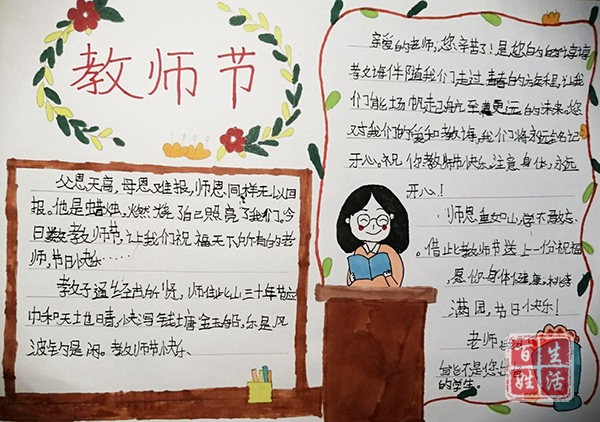 教师节
父恩天高,母恩难报,师恩同样无以回
报。他是蜡烛,燃烧了自己照亮了我们。今
日教师节,让我们祝福天下所有的老
师,节日快乐……
教子通经出所贤,师住此山三十年节
巾和天土也晴,快泻钱塘金玉船,乐是风
波钓是闲。教师节快乐、
亲爱的老师,您辛苦了!是您的谆谆
教诲伴随我们走过青春的旅程,让我
们能扬帆走,航至更远的未来。您
对我们的爱和教诲,我们将永远铭记
开心。祝你教师节快乐,注意身体,永远
开心!
师恩重如山,学不敢忘、
借此教师节送上一份祝福
愿你身体健康,桃李
满园,节日快乐!
老师
能不是您
的学生。
百姓生活